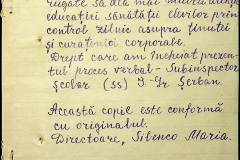 rugate să dea mai multă atenție
educației sănătății elevilor prin
control zilnic asupra ținutei
și curățeniei corporale.
Drept care am încheiat prezen-
tul proces verbal - Subinspector
Școlar (ss) I. Gr. Șerban.
Această copie este conformă
cu originalul.
Directoare, Silenco Maria.